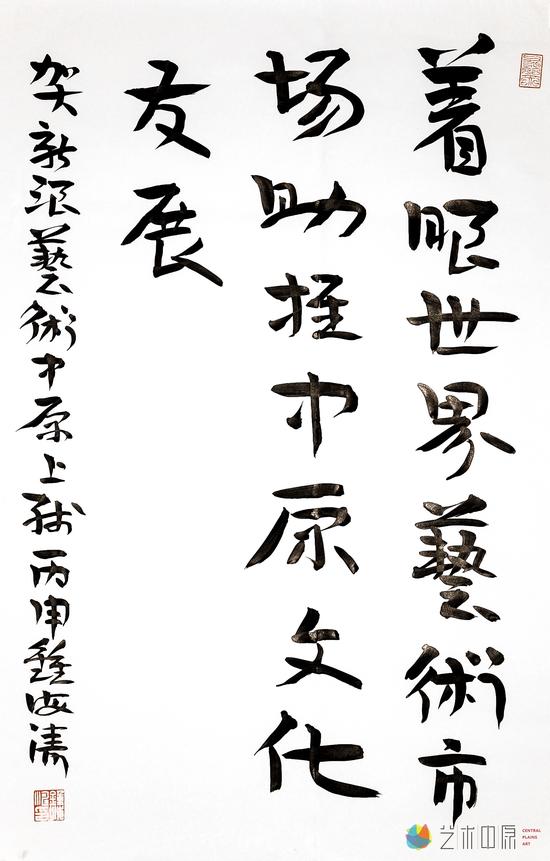 着眼世界藝術市
场助推中原文化
发展
贺新浪藝術中原上线丙申鍾海涛
艺术中原
CENTRAL
PLAINS
ART